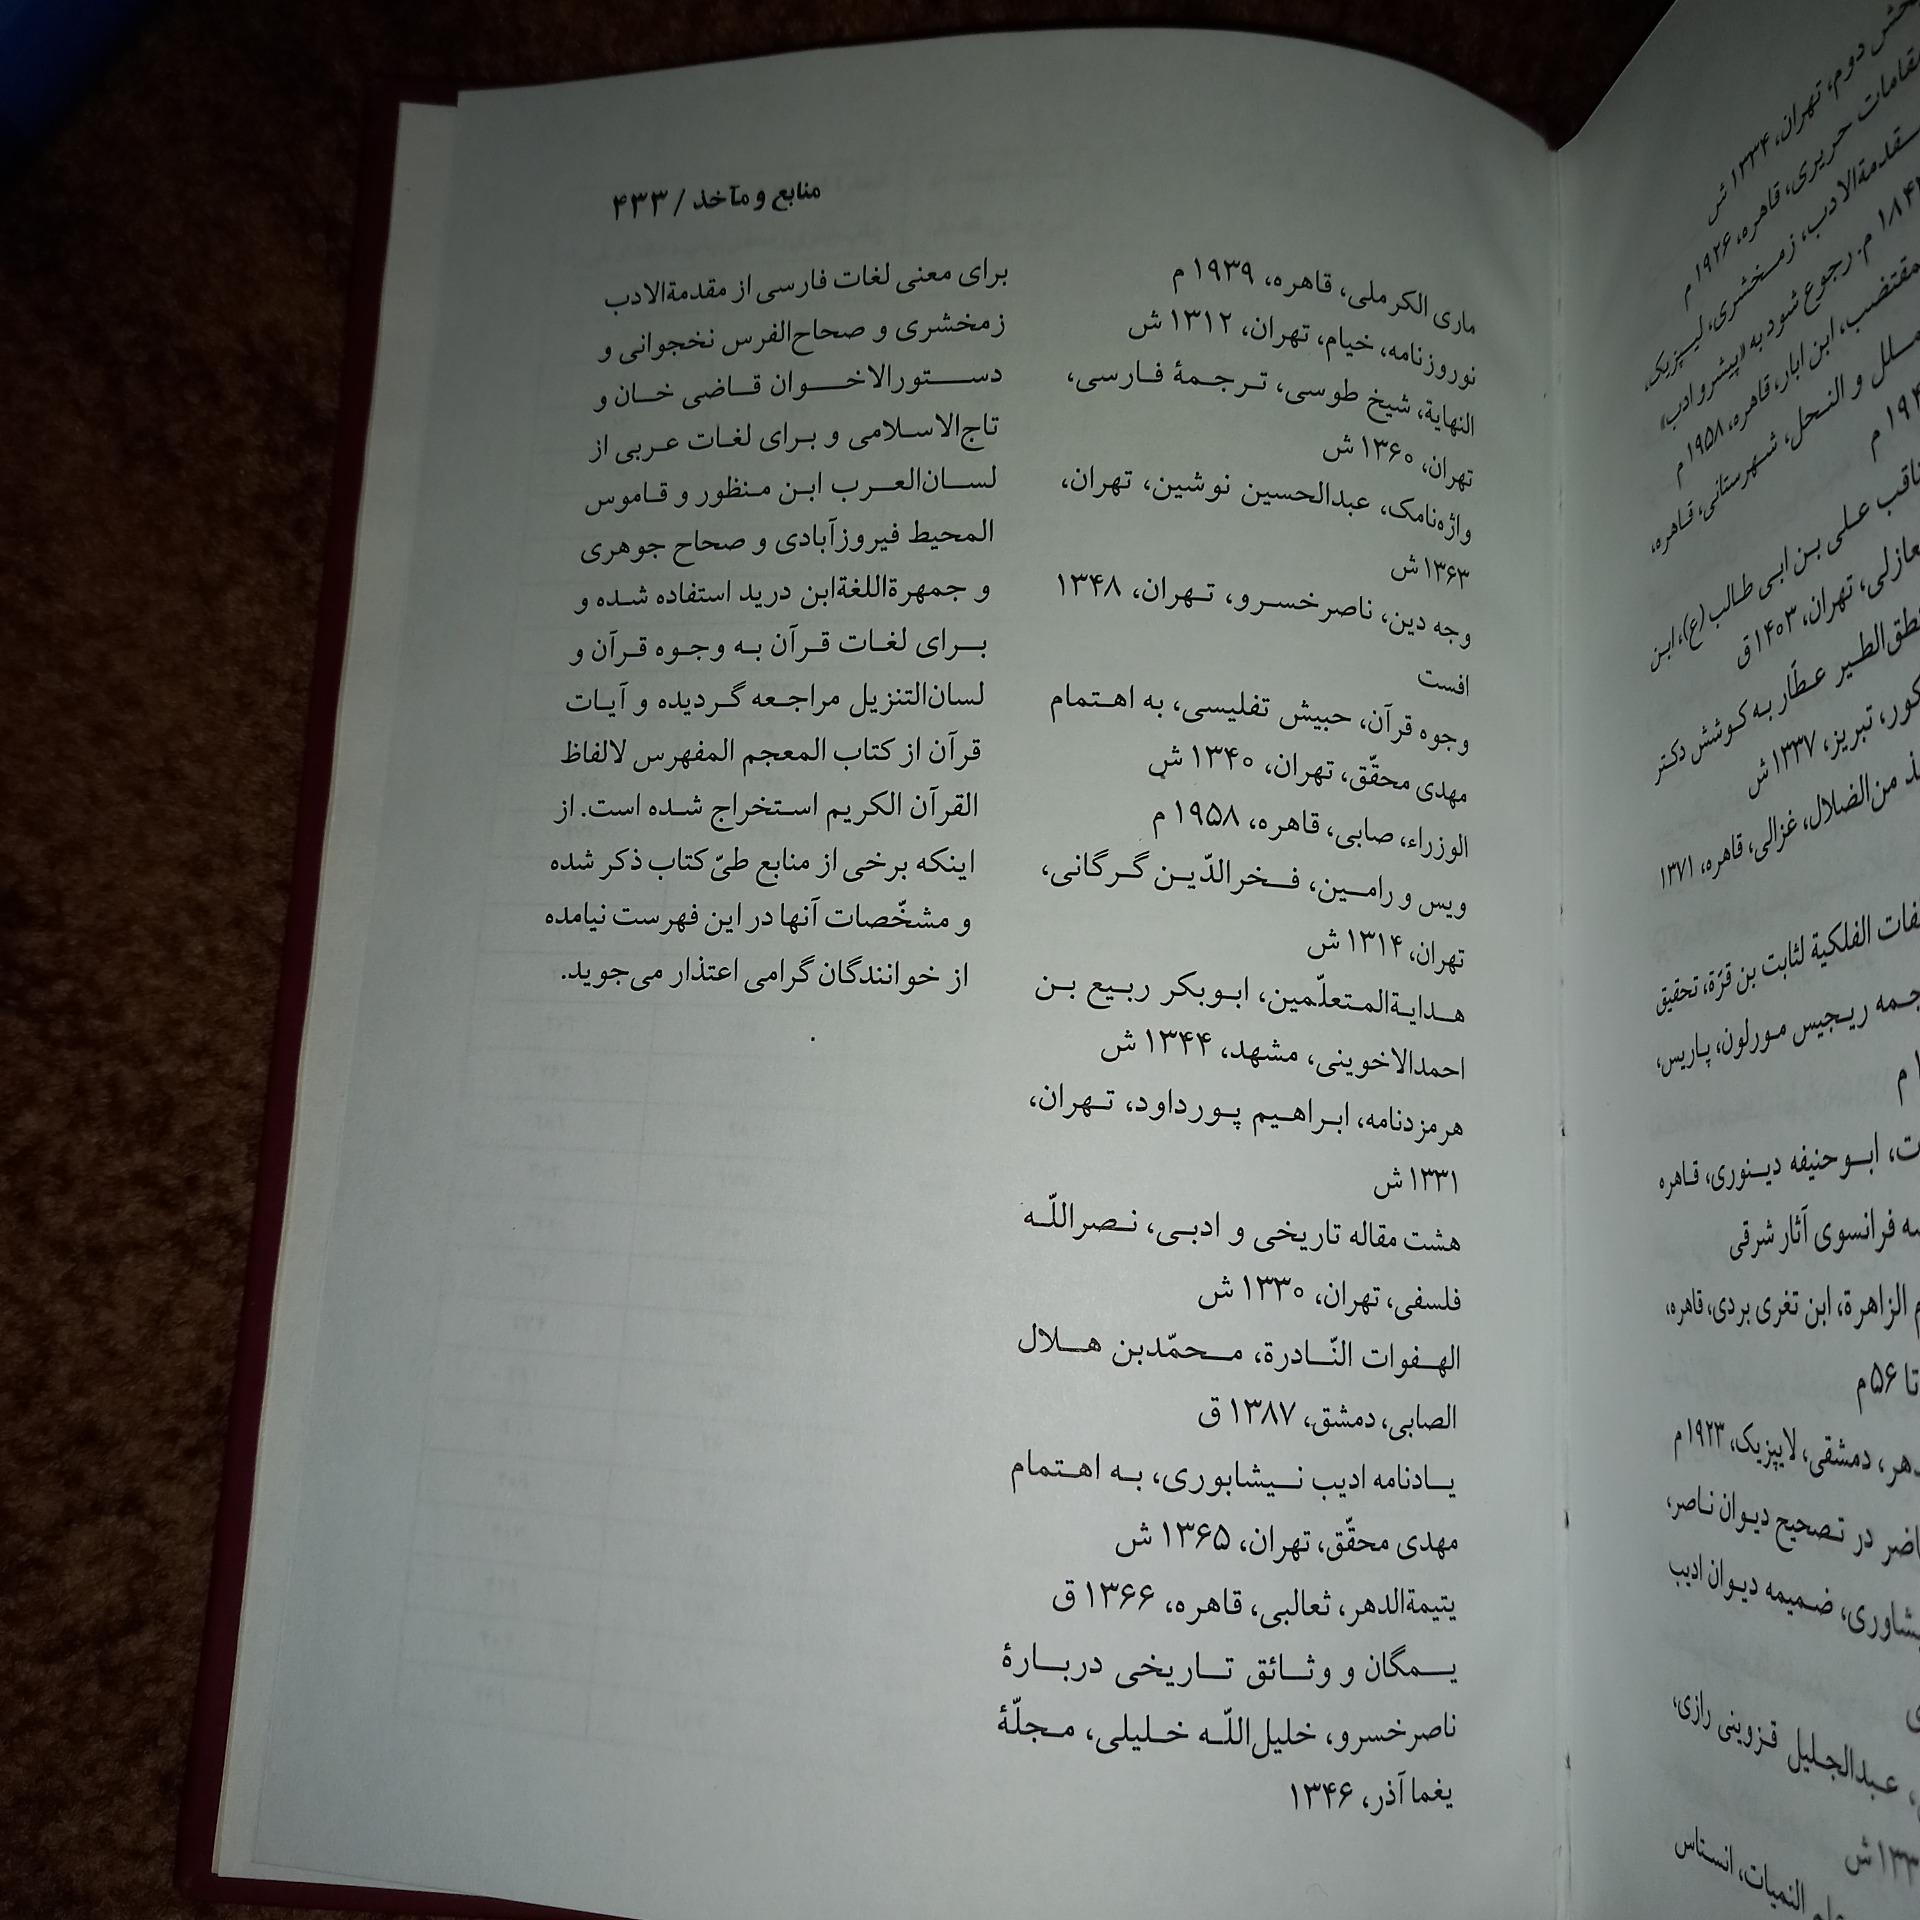 بخش دوم، تهران، ۱۳۳۴ ش
مقامات حریری، قاهره، ۱۹۲۶ م
مقدمةالادب، زمخشری، لیپزیک،
م. رجوع شود به «پیشرو ادب»
مقتضب، ابن ابار، قاهره، ۱۹۵۸ م
ملل و النحل، شهرستانی، قاهره،
م
علی بن ابی طالب (ع)، ابن
تهران، ۱۴۰۳ ق
عطّار به کوشش دکتر
تبریز، ۱۳۳۷ ش
من‌الضلال، غزالی، قاهره، ۱۳۷۱
الفلکیة لثابت بن قرّة، تحقیق
ریجیس مورلون، پاریس،
م
ابوحنیفه دینوری، قاهره
فرانسوی آثار شرقی
الزاهرة، ابن تغری بردی، قاهره،
تا ۵۶ م
دمشقی، لایپزیک، ۱۹۲۳ م
در تصحیح دیوان ناصر،
ضمیمه دیوان ادیب
عبدالجلیل قزوینی رازی،
ش
النمیات، انستاس
منابع و مآخذ / ۴۳۳
ماری الکرملی، قاهره، ۱۹۳۹ م
نوروزنامه، خیام، تهران، ۱۳۱۲ ش
النهایة، شیخ طوسی، ترجمهٔ فارسی،
تهران، ۱۳۶۰ ش
واژه‌نامک، عبدالحسین نوشین، تهران،
۱۳۶۳ ش
وجه دین، ناصرخسرو، تهران، ۱۳۴۸
افست
وجوه قرآن، حبیش تفلیسی، به اهتمام
مهدی محقّق، تهران، ۱۳۴۰ ش
الوزراء، صابی، قاهره، ۱۹۵۸ م
ویس و رامین، فخرالدّین گرگانی،
تهران، ۱۳۱۴ ش
هدایةالمتعلّمین، ابوبکر ربیع بن
احمدالاخوینی، مشهد، ۱۳۴۴ ش
هرمزدنامه، ابراهیم پورداود، تهران،
۱۳۳۱ ش
هشت مقاله تاریخی و ادبی، نصراللّه
فلسفی، تهران، ۱۳۳۰ ش
الهفوات النّادرة، محمّدبن هلال
الصابی، دمشق، ۱۳۸۷ ق
یادنامه ادیب نیشابوری، به اهتمام
مهدی محقّق، تهران، ۱۳۶۵ ش
یتیمةالدهر، ثعالبی، قاهره، ۱۳۶۶ ق
یمگان و وثائق تاریخی دربارهٔ
ناصرخسرو، خلیل‌اللّه خلیلی، مجلّهٔ
یغما آذر، ۱۳۴۶
برای معنی لغات فارسی از مقدمةالادب
زمخشری و صحاح‌الفرس نخجوانی و
دستورالاخوان قاضی خان و
تاج‌الاسلامی و برای لغات عربی از
لسان‌العرب ابن منظور و قاموس
المحیط فیروزآبادی و صحاح جوهری
و جمهرةاللغةابن درید استفاده شده و
برای لغات قرآن به وجوه قرآن و
لسان‌التنزیل مراجعه گردیده و آیات
قرآن از کتاب المعجم المفهرس لالفاظ
القرآن الکریم استخراج شده است. از
اینکه برخی از منابع طیّ کتاب ذکر شده
و مشخّصات آنها در این فهرست نیامده
از خوانندگان گرامی اعتذار می‌جوید.